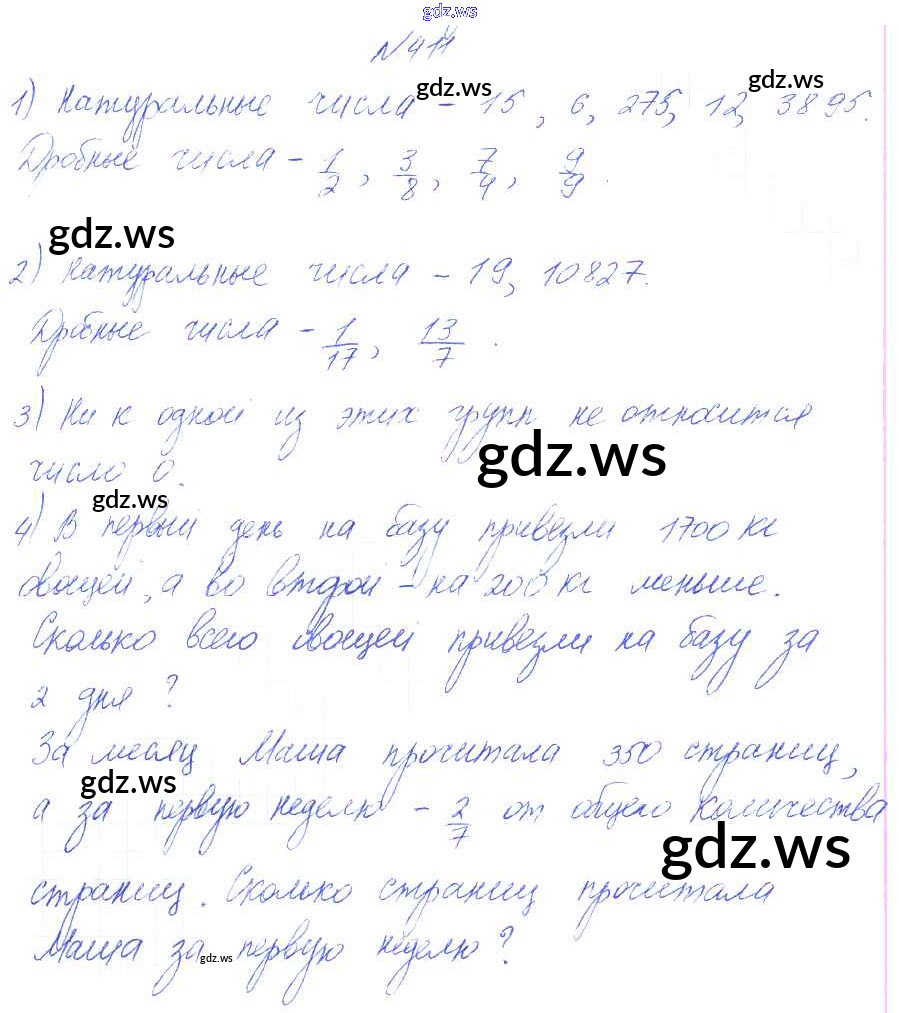 gdz.ws
№411
1) Натуральные числа - 15, 6, 275, 12, 3895.
gdz.ws
gdz.ws
Дробные числа - 1/2, 3/8, 7/4, 9/9.
gdz.ws
2) Натуральные числа - 19, 10827.
Дробные числа - 1/17, 13/7.
3) Ни к одной из этих групп не относится
gdz.ws
число 0.
gdz.ws
4) В первый день на базу привезли 1700 кг
овощей, а во второй - на 200 кг меньше.
Сколько всего овощей привезли на базу за
2 дня?
За месяц Маша прочитала 350 страниц,
gdz.ws
а за первую неделю - 2/7 от общего количества
gdz.ws
страниц. Сколько страниц прочитала
Маша за первую неделю?
gdz.ws